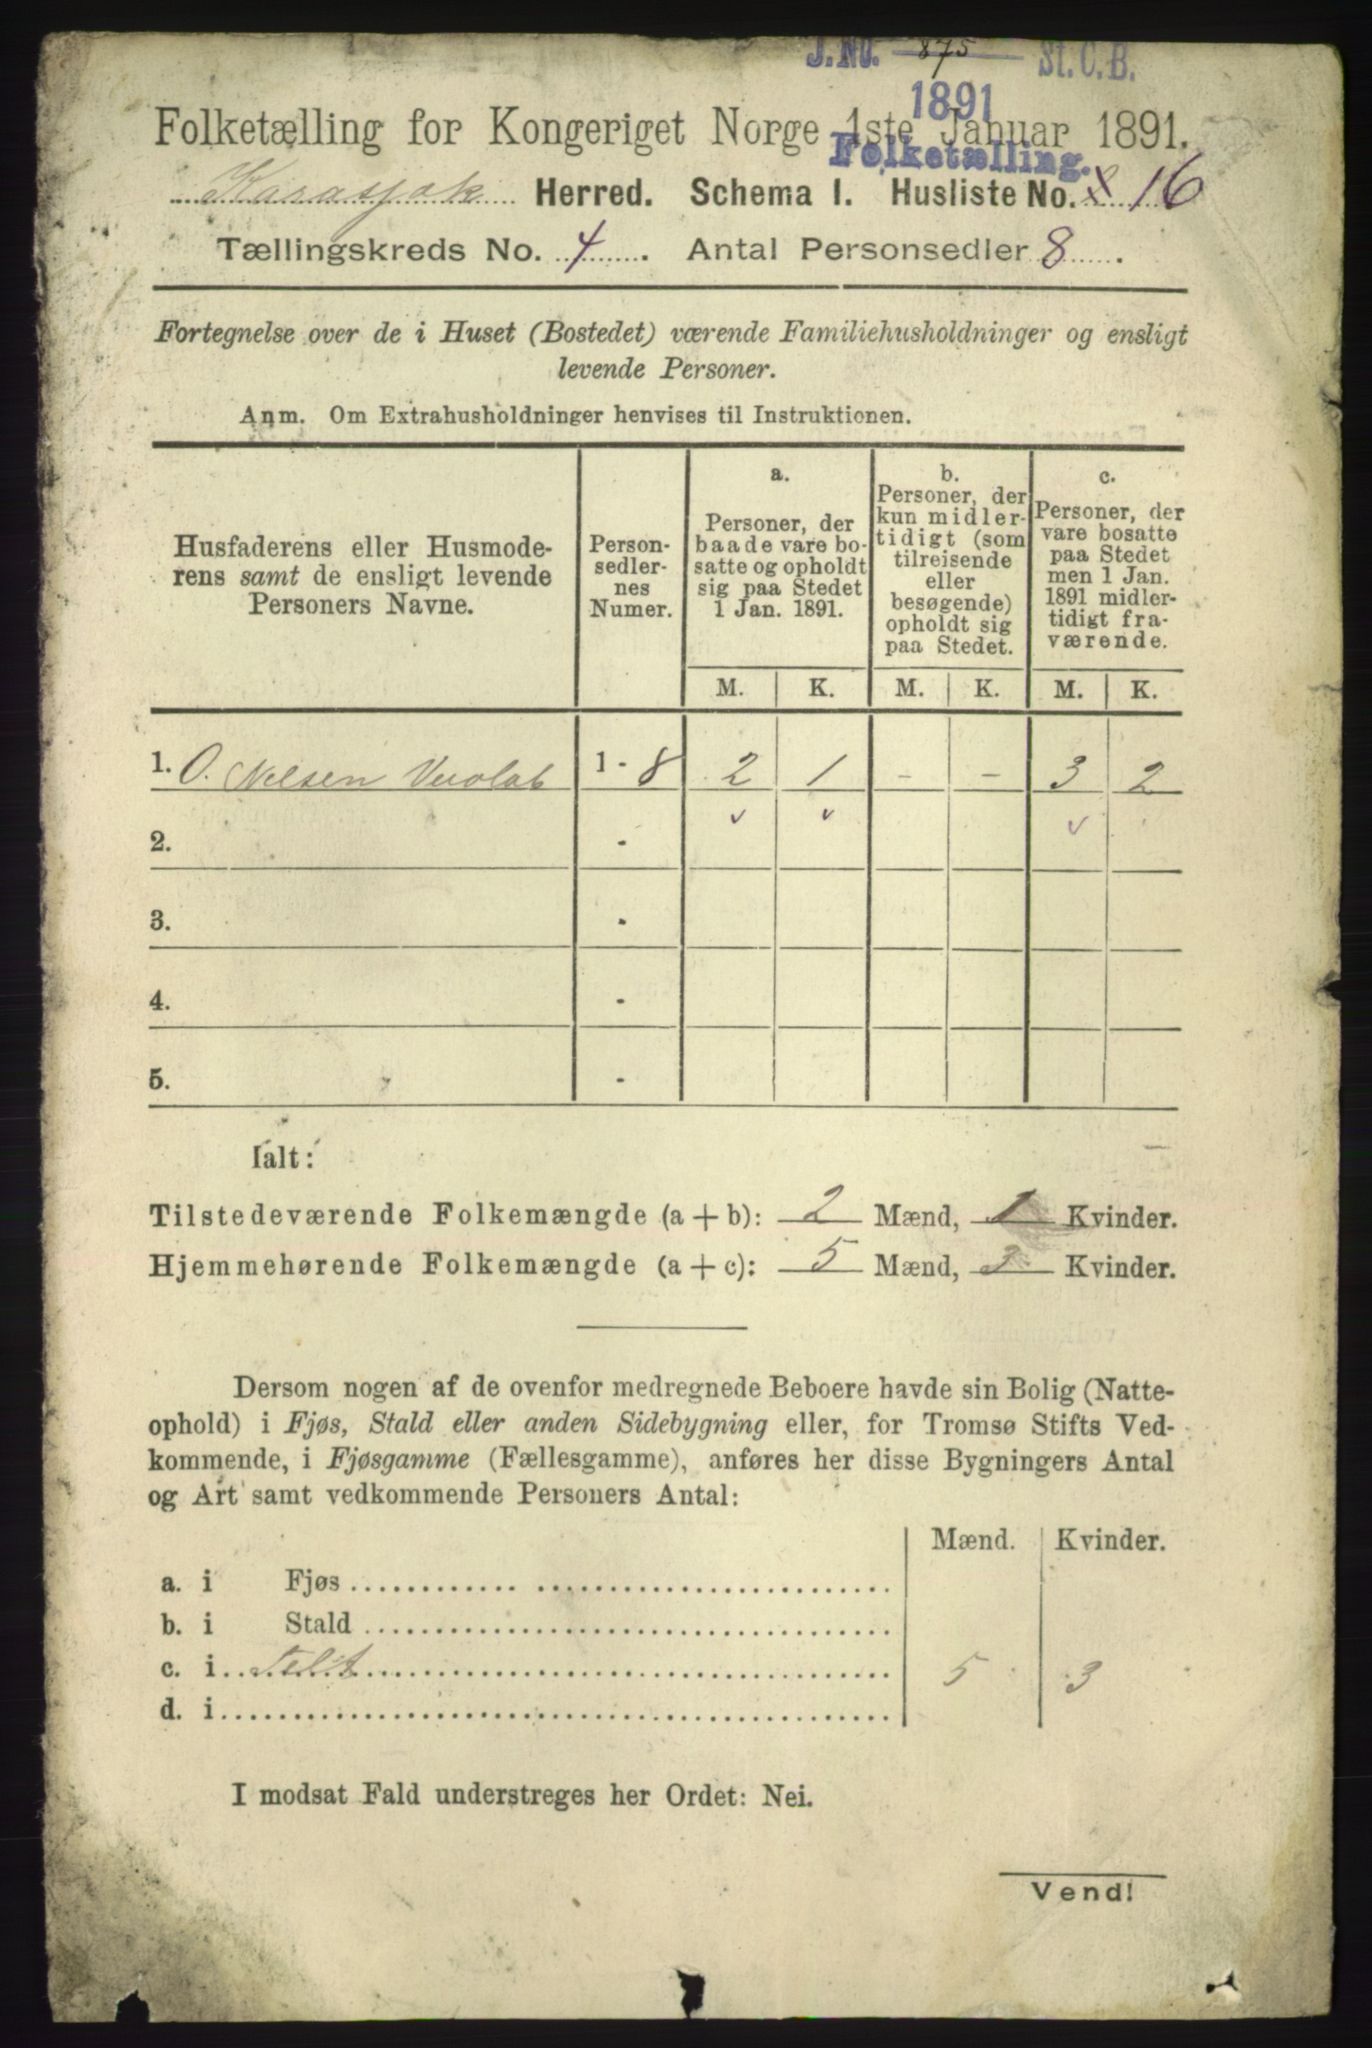 J.No. 875 St.C.B.
1891
Folketælling for Kongeriget Norge 1ste Januar 1891.
Folketælling.
Karasjok Herred. Schema I. Husliste No. 16
Tællingskreds No. 4. Antal Personsedler 8.
Fortegnelse over de i Huset (Bostedet) værende Familiehusholdninger og ensligt
levende Personer.
Anm. Om Extrahusholdninger henvises til Instruktionen.
Husfaderens eller Husmode-
rens samt de ensligt levende
Personers Navne.
Person-
sedler-
nes
Numer.
a.
Personer, der
baade vare bo-
satte og opholdt
sig paa Stedet
1 Jan. 1891.
b.
Personer, der
kun midler-
tidigt (som
tilreisende
eller
besøgende)
opholdt sig
paa Stedet.
c.
Personer, der
vare bosatte
paa Stedet
men 1 Jan.
1891 midler-
tidigt fra-
værende.
M. K. M. K. M. K.
1. O. Nilsen 1 - 8 2 1 - - 3 2
2. -
3. -
4. -
5. -
Ialt:
Tilstedeværende Folkemængde (a + b): 2 Mænd, 1 Kvinder.
Hjemmehørende Folkemængde (a + c): 5 Mænd, 3 Kvinder.
Dersom nogen af de ovenfor medregnede Beboere havde sin Bolig (Natte-
ophold) i Fjøs, Stald eller anden Sidebygning eller, for Tromsø Stifts Ved-
kommende, i Fjøsgamme (Fællesgamme), anføres her disse Bygningers Antal
og Art samt vedkommende Personers Antal:
Mænd. Kvinder.
a. i Fjøs
b. i Stald
c. i Telt 5 3
d. i
I modsat Fald understreges her Ordet: Nei.
Vend!